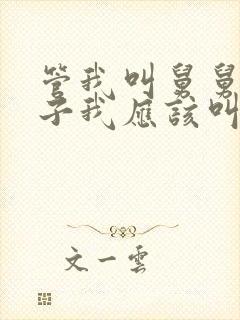 管我叫舅舅
子我應該叫
文一雲